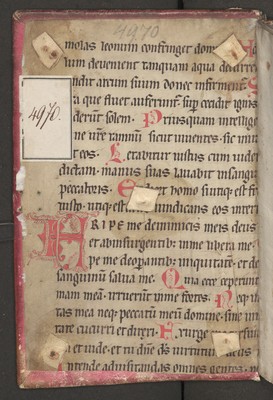 4970
molas leonum confringet dom
lum devenient tamquam aqua decurre
tendit arcum suum donec infirment
a que fluet auferunt sup cecidit ignis
4970.
derunt solem. Priusquam intellige
ne vre ramnu sicut viventes sic in
eos. Letabitur iustus cum vider
dictam manus suas lavabit in sangui
peccatoris. Et dicet homo si utiq est fr
iusto utiq est vindicans eos in terr
ERIPE me de inimicis meis deus
et ab insurgentib in me libera me
pe me de operantib iniquitate et de
sanguinu salva me. Quia ecce ceperunt
mam mea irruerut in me fortes. Neq in
tas mea neq peccatu meu domine sine in
tate cucurri et direxi. Exurge
a et vide et tu dne ds virtutu deus
Intende ad visitandas omnes gentes